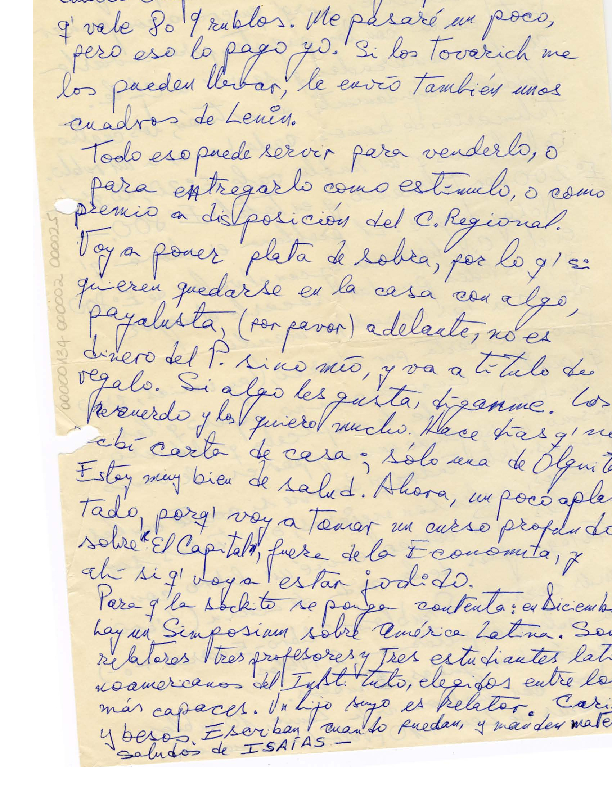 q' vale 8 o 9 rublos. Me pasaré un poco,
pero eso lo pago yo. Si los Tovarich me
los pueden llevar, le envío también unos
cuadros de Lenin.
Todo eso puede servir para venderlo, o
para entregarlo como estímulo, o como
premio a disposición del C. Regional.
Voy a poner plata de sobra, por lo q' si
quieren quedarse en la casa con algo,
(por favor) adelante, no es
dinero del P. sino mío, y va a título de
regalo. Si algo les gusta, díganme. Los
recuerdo y los quiero mucho. Hace días q' no
cibí carta de casa; sólo una de Olguit
Estoy muy bien de salud. Ahora, un poco aple
tado, porq' voy a tomar un curso profundo
sobre "El Capital", fuera de la Economía, y
ahí si q' voy a estar jodido.
Para q' la se ponga contenta: en Diciemb
hay un Simposium sobre América Latina. Son
relatores tres profesores y tres estudiantes lati
noamericanos del Instituto, elegidos entre los
más capaces. Un hijo suyo es Relator. Cari
y besos. Escriban cuando puedan, y manden mate
saludos de ISAIAS -
00000134 000002 000025